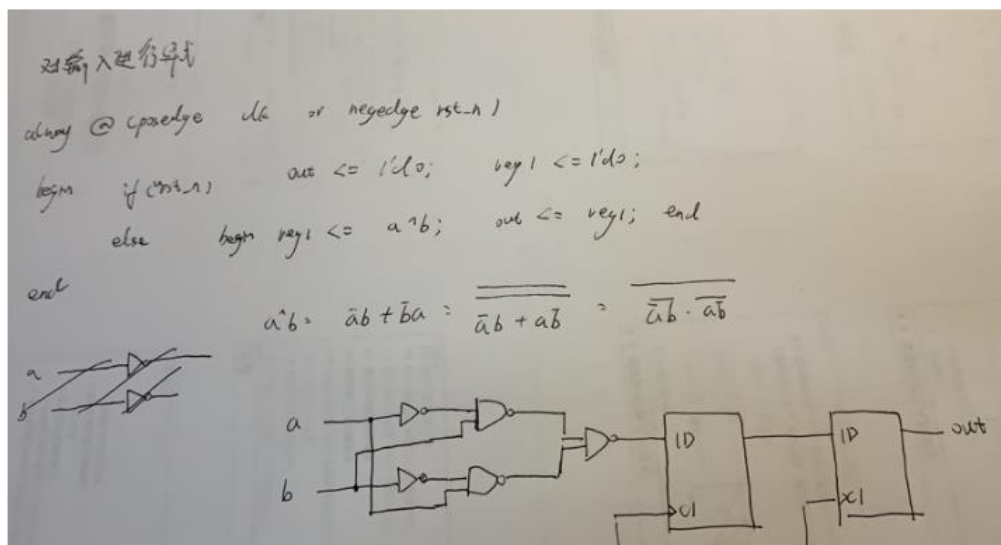 对输入进行异或
alway @ (posedge clk or negedge rst_n)
begin if(!rst_n) out <= 1'd0; reg1 <= 1'd0;
else begin reg1 <= a^b; out <= reg1; end
end
a^b = āb + b̄a = \overline{\overline{āb + ab̄}} = \overline{\overline{āb} · \overline{ab̄}}
a
b
a
b
1D
C1
1D
C1
out